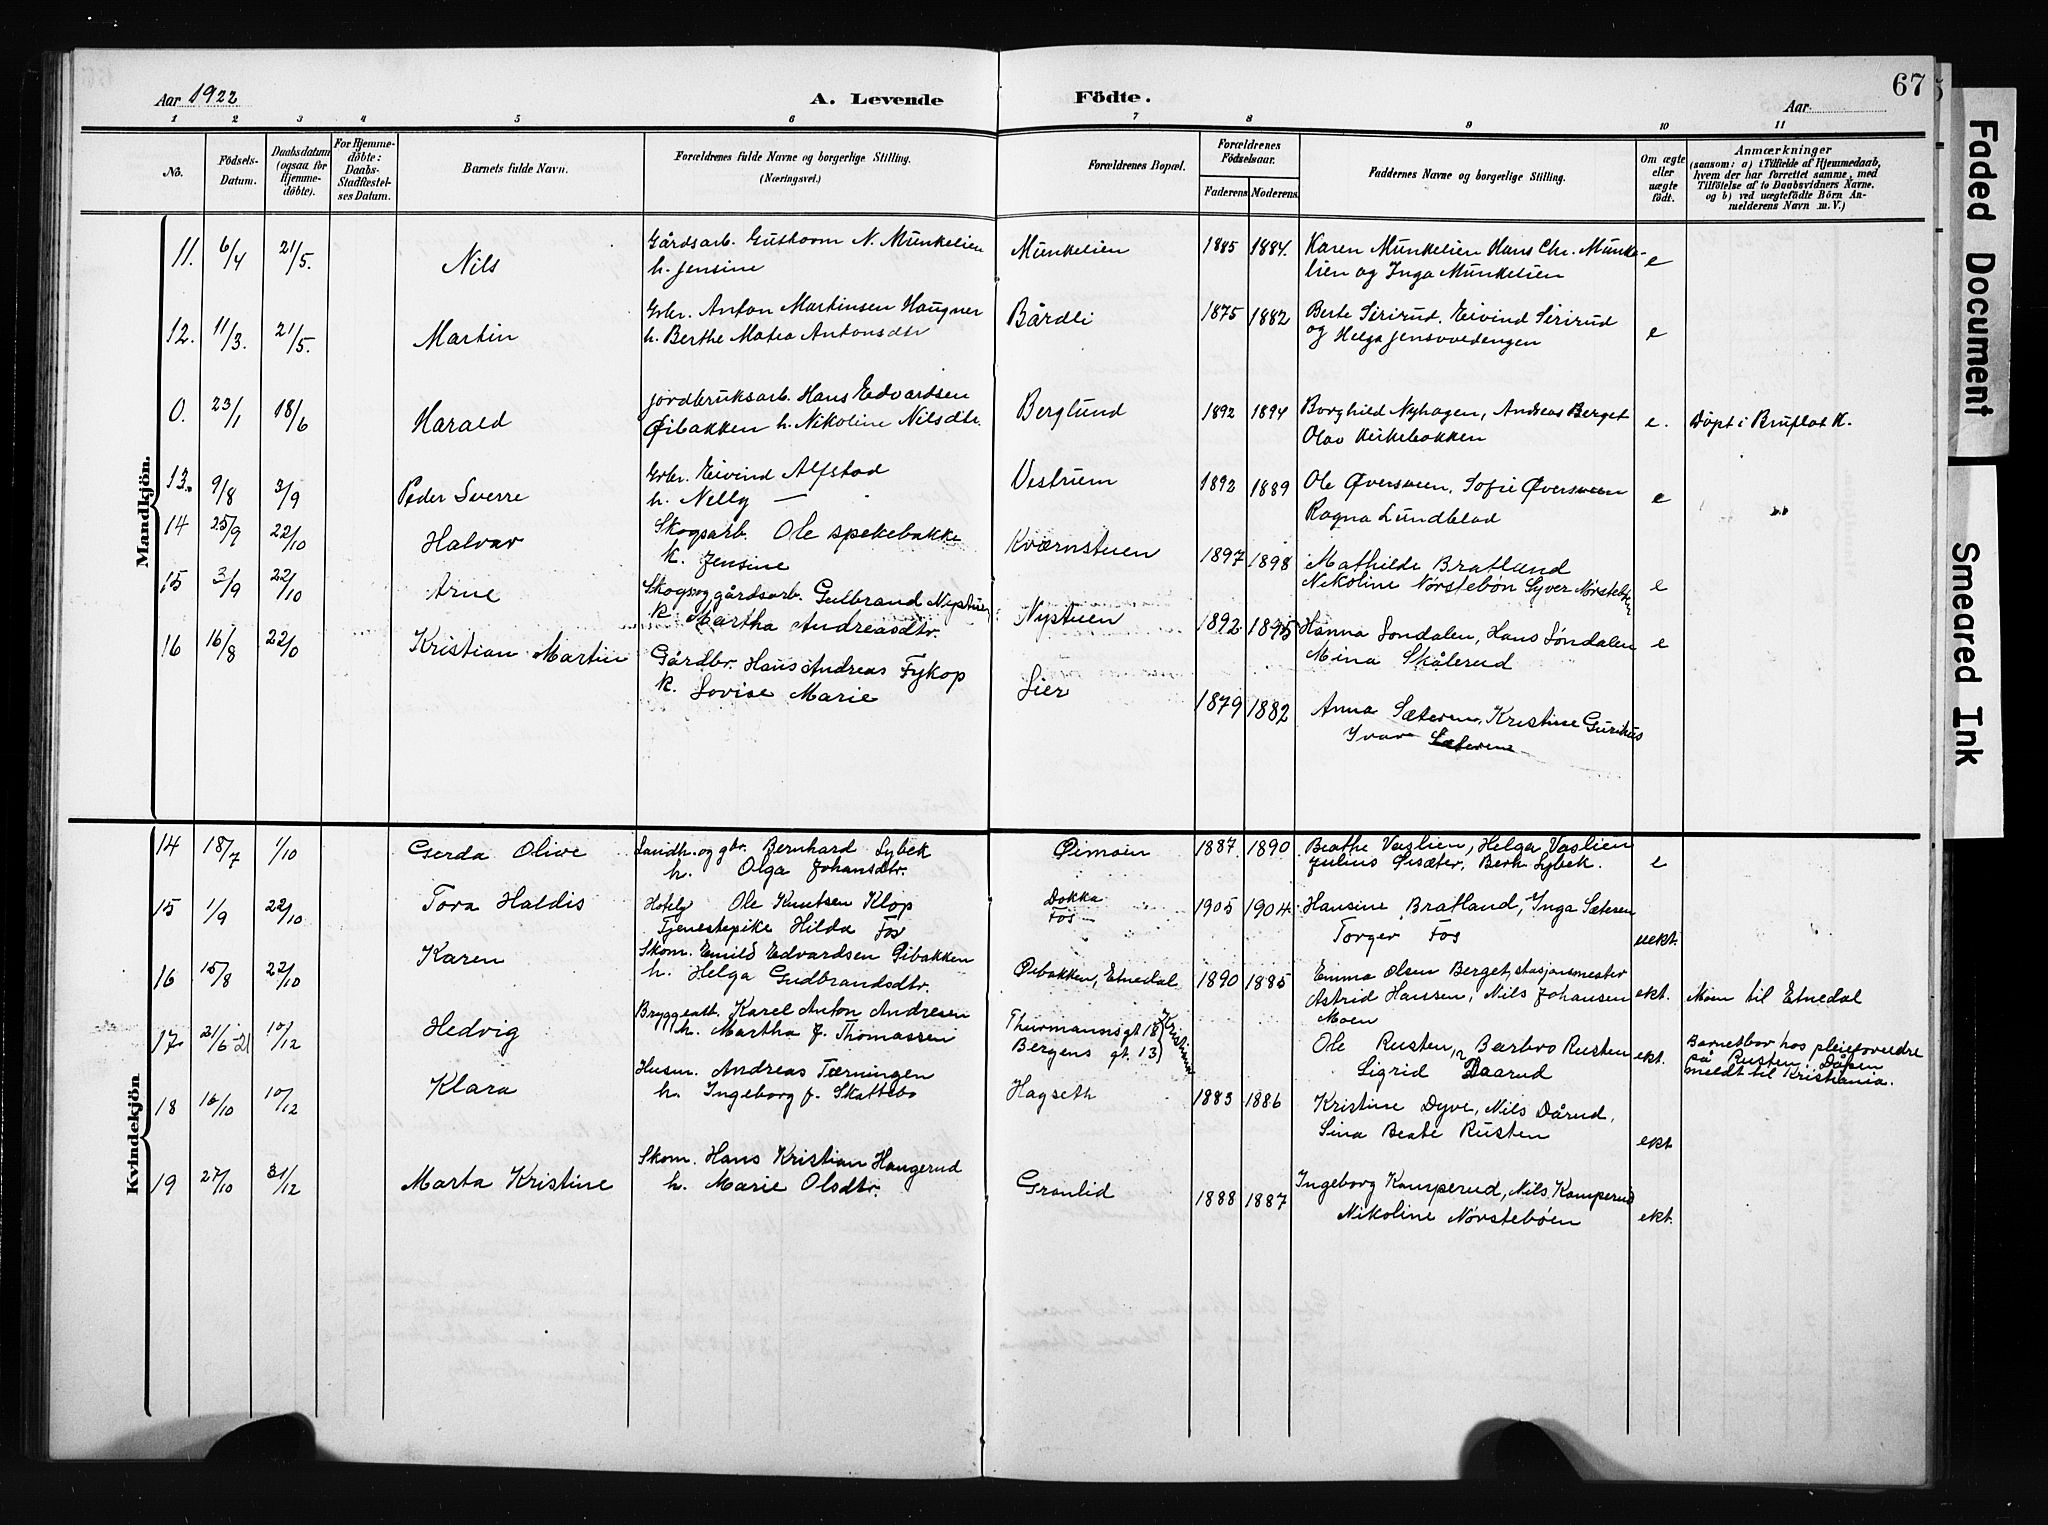 67
Aar 1922
A. Levende
Födte.
Aar
1 2 3 4 5 6 7 8 9 10 11
No.
Födsels-
Datum.
Daabsdatum
(ogsaa for
Hjemme-
döbte).
For Hjemme-
döbte:
Daabs-
Stadfæstel-
ses Datum.
Barnets fulde Navn.
Forældrenes fulde Navne og borgerlige Stilling.
(Næringsvei.)
Forældrenes Bopæl.
Forældrenes
Födselsaar.
Faderens Moderens
Faddernes Navne og borgerlige Stilling.
Om ægte
eller
uægte
födt.
Anmærkninger
(saasom: a) i Tilfælde af Hjemmedaab,
hvem der har forrettet samme, med
Tilföielse af to Daabsvidners Navne.
og b) ved uægtefödte Börn An-
melderens Navn m. V.)
Mandkjön.
11. 6/4 21/5. Nils
Gårdsarb. Guthorm N. Munkelien
h. Jensine
Munkelien 1885 1884.
Karen Munkelien Hans Chr. Munke-
lien og Inga Munkelien e
12. 11/3. 21/5. Martin
Grbr. Anton Martinsen Haugner
h. Berthe Matea Antonsdtr
Bårdli 1875 1882
Berte Sirirud, Eivind Sirirud
og Helga Jensvoldengen e
0. 23/1 18/6 Harald
Jordbruksarb. Hans Edvardsen
Øibakken h. Nikoline Nilsdtr.
Berglund 1892 1894
Borghild Nyhagen, Andreas Berget
Olav Kirkebakken e. Döpt i Bruflat K.
13. 9/8 3/9 Peder Sverre
Grbr. Eivind Alfstad
h. Nelly —
Vestrum 1892 1889
Ole Øversveen, Sofie Øversveen
Ragna Lundblad e
14 25/9 22/10 Halvar
Skogsarb. Ole Spekebakke
k. Jensine
Kværnstuen 1897 1898
Mathilde Bratlund
Nikoline Nørstebøn Syver Nørstebø e
15 3/9 22/10 Arne
Skogs og gårdsarb. Gulbrand Nystuen
k. Martha Andreasdtr.
Nystuen 1892 1895
Hanna Søndalen, Hans Søndalen
Mina Skålerud e
16 16/8 22/0 Kristian Martin
Gårdbr. Hans Andreas Fykop
k. Lovise Marie
Lier 1879 1882
Anna Sæteren, Kristine Gurihus
Ivar Sæteren
Kvindekjön
14 18/7 1/10 Gerda Olive
Landh. og gbr. Bernhard Lybek
h. Olga Johansdtr.
Øimoin 1887 1890
Beathe Vaslien, Helga Vaslien
Julius Lisæter, Berh. Lybek. e
15 1/9 22/10 Tora Haldis
Hotelg Ole Knutsen Klop
Tjenestepike Hilda Fos
Dokka
Fos 1905 1904
Hansine Bratland, Inga Sæteren
Torger Fos uekt.
16 15/8 22/10 Karen
Skom. Emild Edvardsen Øibakken
h. Helga Gudbrandsdtr.
Øibakken, Etnedal 1890 1885
Emma Olsen Berget, stasjonsmester
Astrid Hanssen, Nils Johansen
Moen ekt. Moen til Etnedal
17. 21/6-21 10/12 Hedvig
Bryggearb. Karel Anton Andresen
h. Martha f. Thomassen
Thurmannsgt 18 } Kristiania
Bergens gt. 13
Ole Rusten, Barbro Rusten
Sigrid Daarud ekt.
Barnet bor hos pleieforeldre
på Rusten. Dåpen
meldt til Kristiania.
18 16/10 10/12 Klara
Husm. Andreas Tærningen
h. Ingeborg f. Skattebo
Hagseth 1883 1886
Kristine Dyve, Nils Dårud,
Sina Beate Rusten ekt
19 27/10 31/12 Marta Kristine
Skom. Hans Kristian Haugerud
h. Marie Olsdtr.
Granlid 1888 1887
Ingeborg Kamperud, Nils Kamperud
Nikoline Nørstebøen ekt.
Faded Document
Smeared Ink